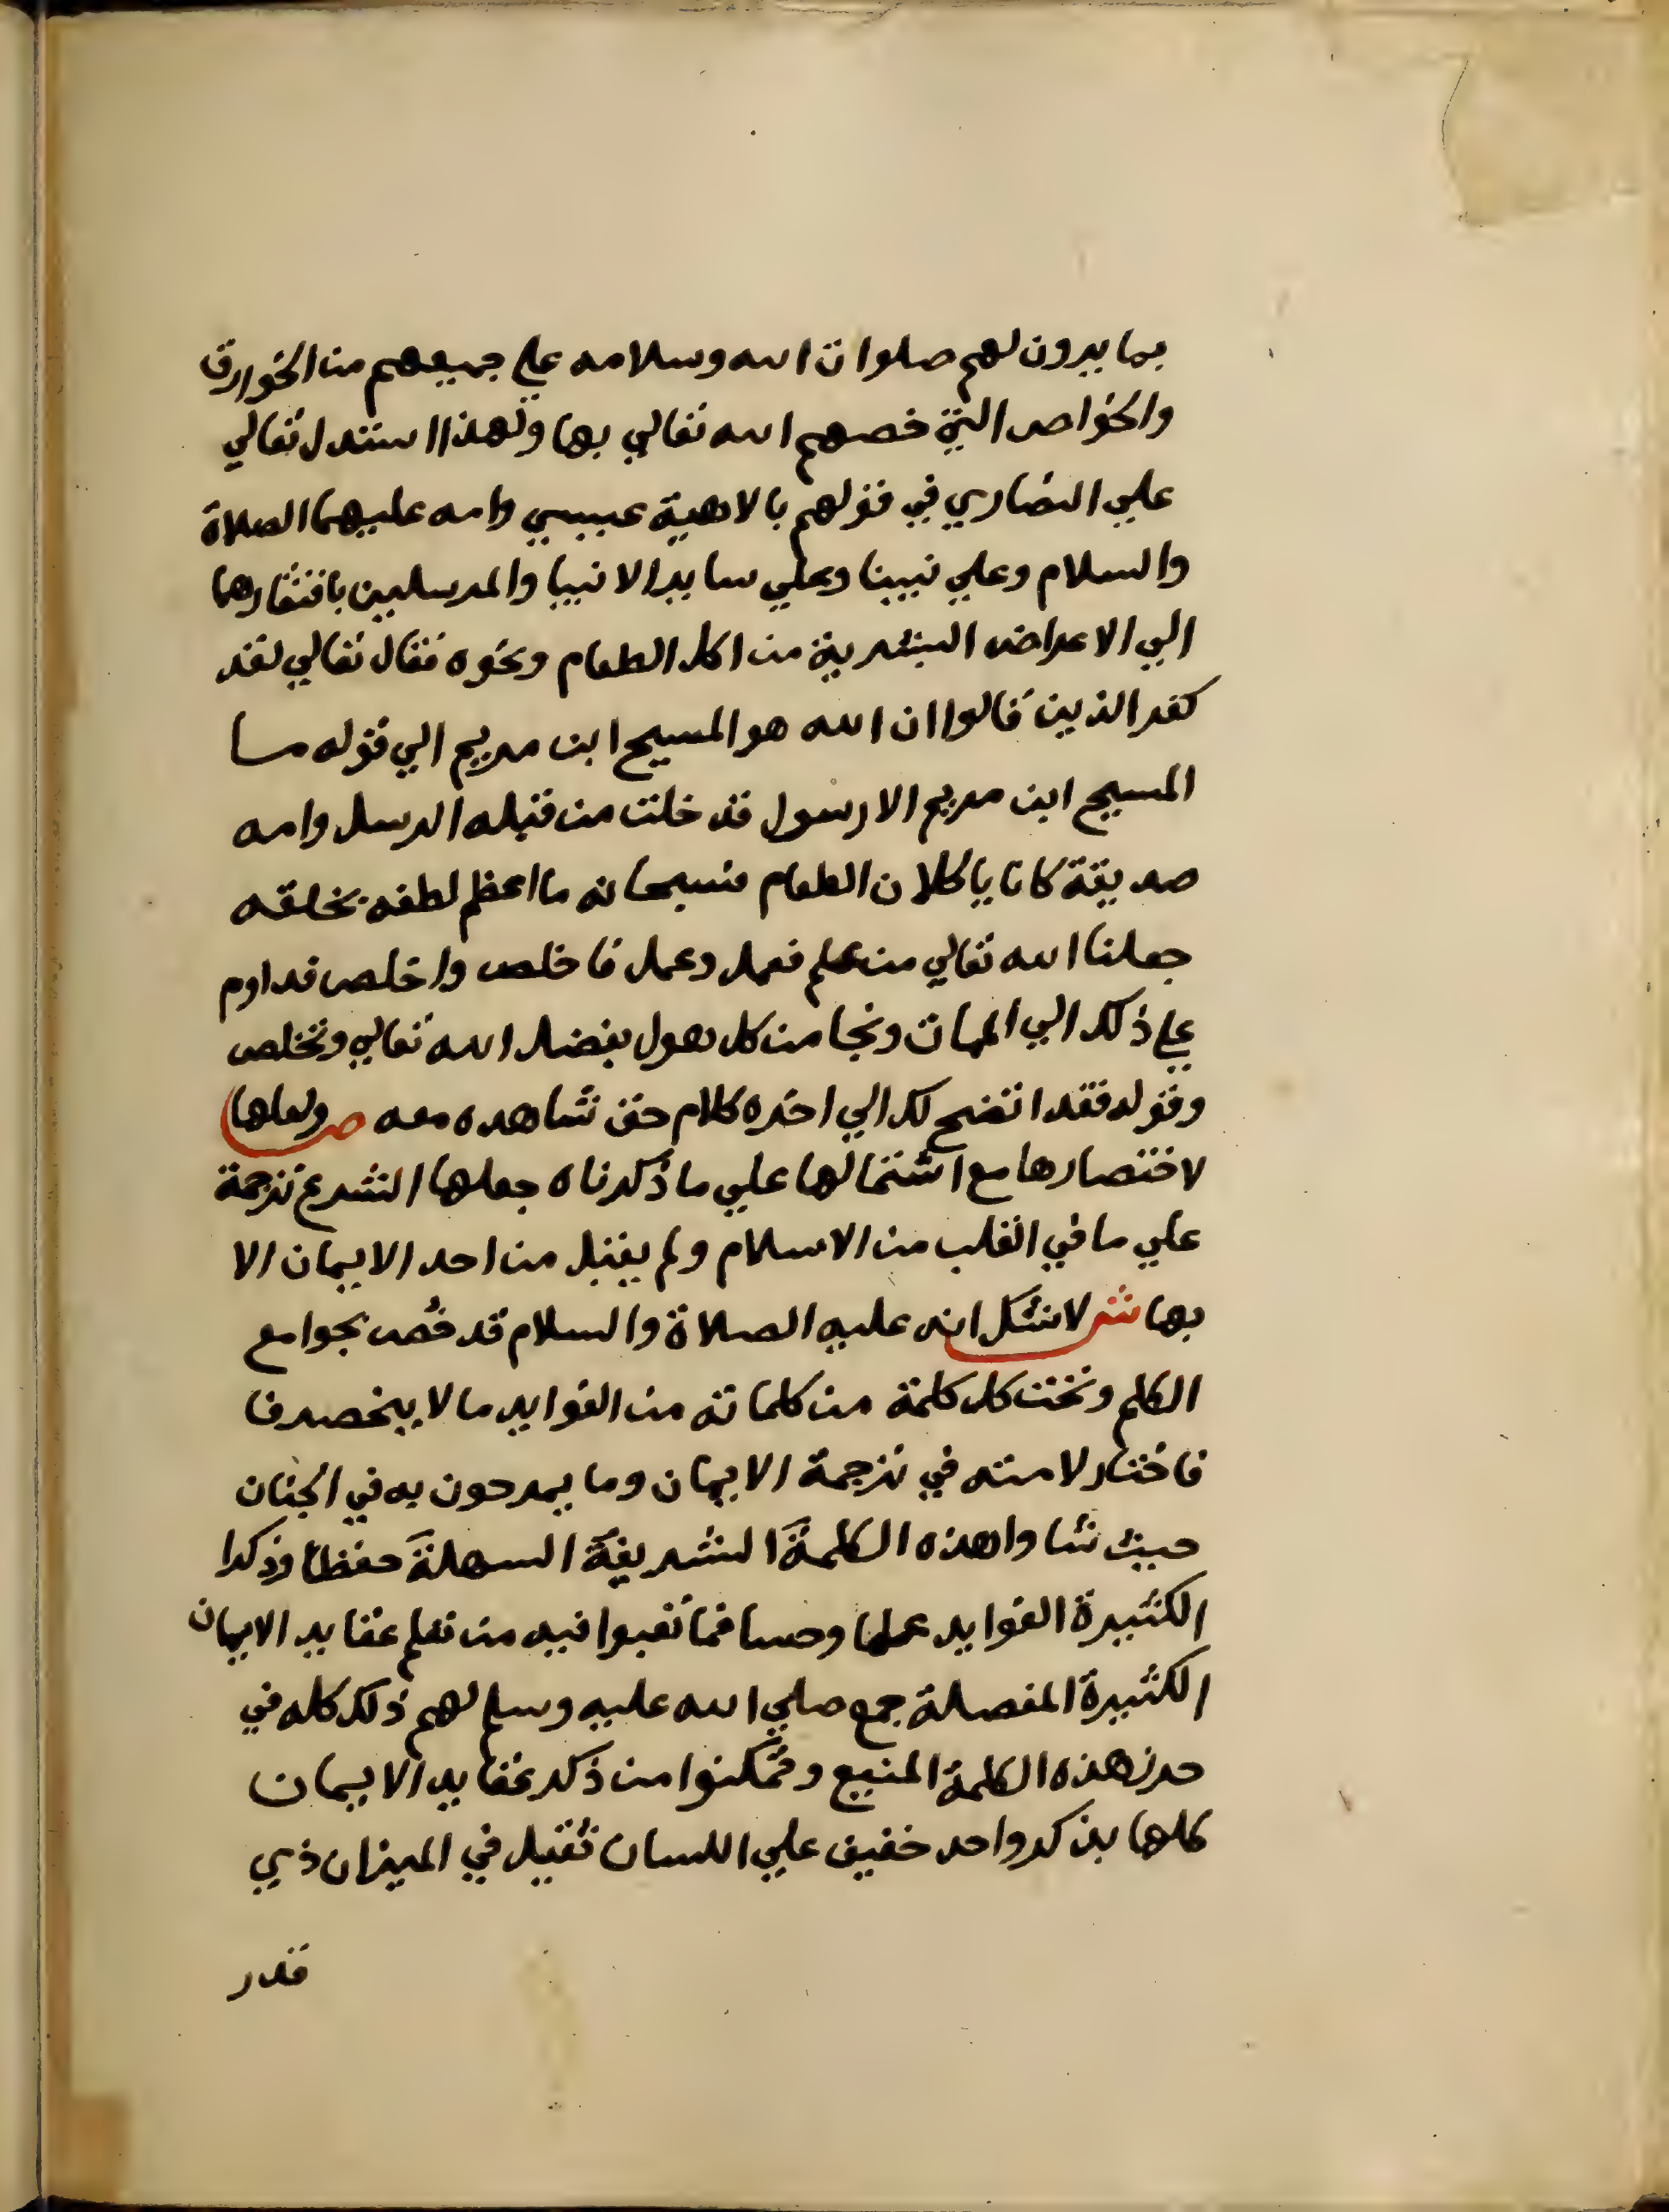 بما يرون لهم صلوات الله وسلامه علي جميعهم من الخوارق
والخواص التي خصهم الله تعالي بها ولهذا استدل تعالي
علي النصاري في قولهم بالاهية عيسي وامه عليهما الصلاة
والسلام وعلي نبينا وعلي ساير الانبيا والمرسلين بافتقارهما
الي الاعراض البشرية من اكل الطعام ونحوه فقال تعالي لقد
كفر الذين قالوا ان الله هو المسيح ابن مريم الي قوله ما
المسيح ابن مريم الا رسول قد خلت من قبله الرسل وامه
صديقة كانا ياكلان الطعام فسبحانه ما اعظم لطفه بخلقه
جعلنا الله تعالي من علم فعمل وعمل فاخلص واخلص فداوم
علي ذلك الي الممات ونجا من كل هول بفضل الله تعالي وتخلص
وقوله فقد اتضح لك الي اخره كلام حق تشاهده معه ص ولعلها
لاختصارها مع اشتمالها علي ما ذكرناه جعلها الشرع ترجمة
علي ما في القلب من الاسلام ولم يقبل من احد الايمان الا
بها ش لا شك انه عليه الصلاة والسلام قد خُص بجوامع
الكلم وتحت كل كلمة من كلماته من الفوايد ما لا ينحصر فا
فاختار لامته في ترجمة الايمان وما يمرحون به في الجنان
حيث شاوا هذه الكلمة الشريفة السهلة حفظا وذكرا
الكثيرة الفوايد علما وحسا فما تعبوا فيه من تعلم عقايد الايمان
الكثيرة المفصلة جمع صلي الله عليه وسلم لهم ذلك كله في
حرز هذه الكلمة المنيع وتمكنوا من ذكر عقايد الايمان
كلها بذكر واحد خفيف علي اللسان ثقيل في الميزان ذي
قدر